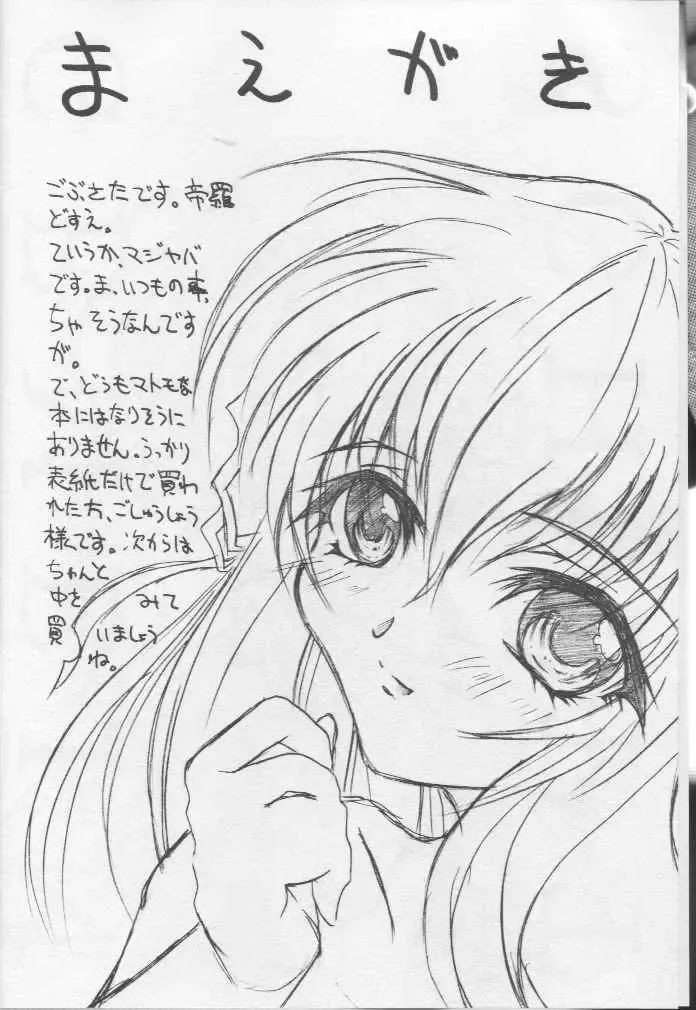 まえがき
ごぶさたです。帝羅
どすえ。
ていうか、マジヤバ
です。ま、いつもの事、
ちゃそうなんです
が。
で、どうもマトモな
本にはなりそうに
ありません。うっかり
表紙だけで買わ
れた方、ごしゅうしょう
様です。次からは
ちゃんと
中を みて
買 いましょう
ね。